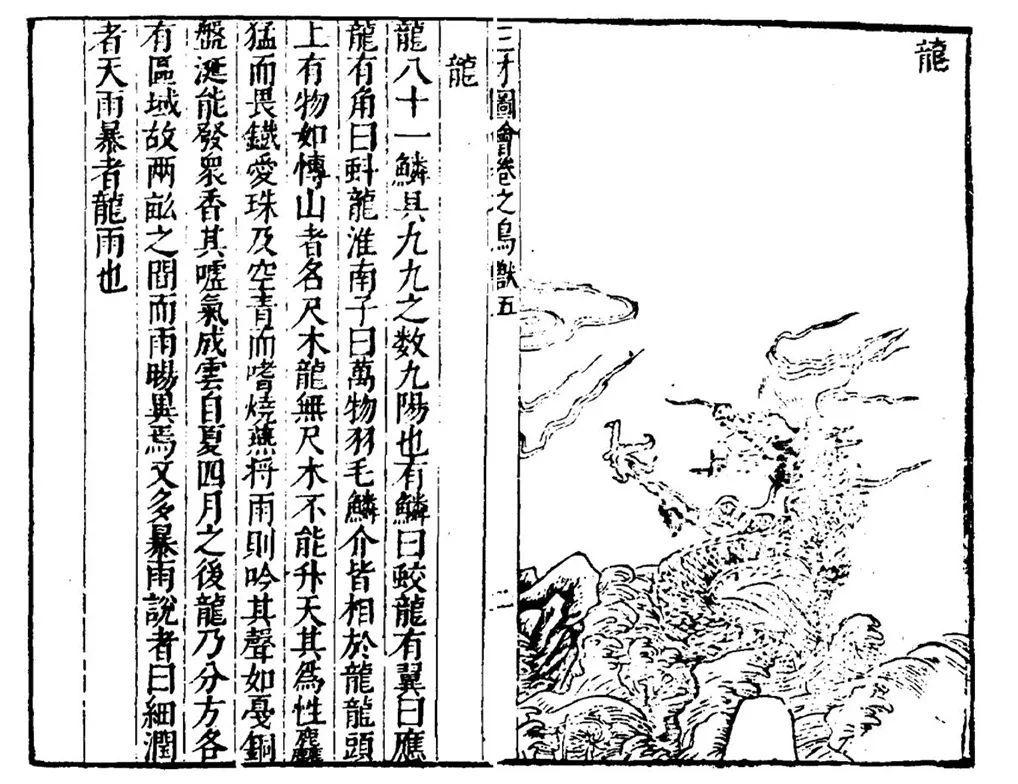 龍
三才圖會卷之鳥獸五 二
龍
龍八十一鱗具九九之数九陽也有鱗曰蛟龍有翼曰應
龍有角曰蚪龍淮南子曰萬物羽毛鱗介皆相於龍龍頭
上有物如愽山者名尺木龍無尺木不能升天其爲性麤
猛而畏鐵愛珠及空青而嗜燒燕将雨則吟其聲如戞銅
盤涎能發衆香其噓氣成雲自夏四月之後龍乃分方各
有區域故两畝之間而雨暘異焉又多暴雨說者曰細潤
者天雨暴者龍雨也